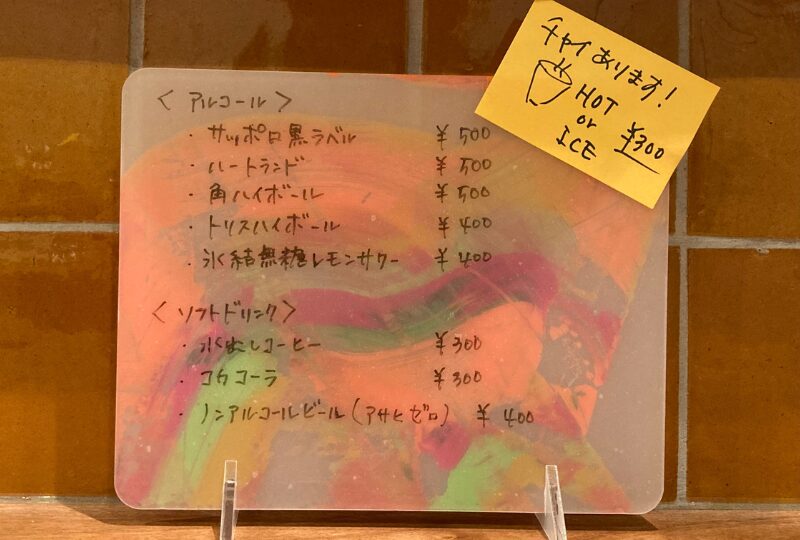 〈 アルコール 〉
・サッポロ黒ラベル ¥500
・ハートランド ¥500
・角ハイボール ¥500
・トリスハイボール ¥400
・氷結無糖レモンサワー ¥400
〈 ソフトドリンク 〉
・水出しコーヒー ¥300
・コカコーラ ¥300
・ノンアルコールビール(アサヒゼロ) ¥400
チャイあります!
HOT
or
ICE
¥300